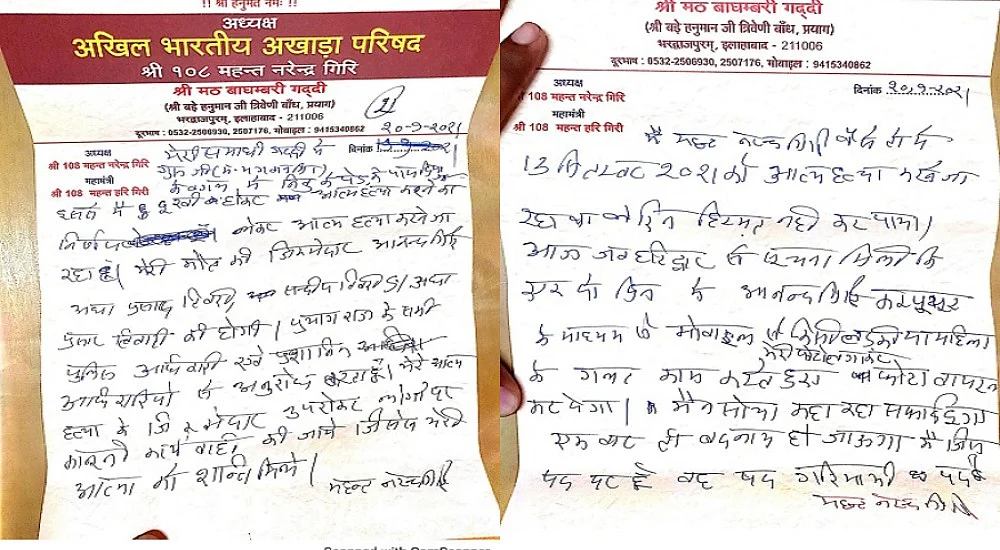 !! श्री हनुमते नमः !!
अध्यक्ष
अखिल भारतीय अखाड़ा परिषद
श्री १०८ महन्त नरेन्द्र गिरि
श्री मठ बाघम्बरी गद्दी
(श्री बड़े हनुमान जी त्रिवेणी बाँध, प्रयाग)
भरद्वाजपुरम्, इलाहाबाद - 211006
दूरभाष : 0532-2506930, 2507176, मोबाइल : 9415340862
अध्यक्ष
श्री 108 महन्त नरेन्द्र गिरि
महामंत्री
श्री 108 महन्त हरि गिरी
दिनांक
मेरी समाधी गद्दी में
गुरु जी
के बगल में
मैं दुखी होकर आत्म हत्या करने का
निर्णय लेकर आत्म हत्या करने जा
रहा हूँ। मेरी मौत की जिम्मेदार आनन्द गिरि
आद्या प्रसाद तिवारी सन्दीप तिवारी आद्या
प्रसाद तिवारी की होगी। प्रयागराज के सभी
पुलिस अधिकारी एवं प्रशासनिक
अधिकारियों से अनुरोध करता हूँ। मेरे आत्म
हत्या के जिम्मेदार उपरोक्त लोगों पर
कानूनी कार्यवाही की जाये जिससे मेरी
आत्मा को शान्ति मिले।
महन्त नरेन्द्र गिरि
Scanned with CamScanner
श्री मठ बाघम्बरी गद्दी
(श्री बड़े हनुमान जी त्रिवेणी बाँध, प्रयाग)
भरद्वाजपुरम्, इलाहाबाद - 211006
दूरभाष : 0532-2506930, 2507176, मोबाइल : 9415340862
अध्यक्ष
श्री 108 महन्त नरेन्द्र गिरि
महामंत्री
श्री 108 महन्त हरि गिरी
दिनांक
मैं महन्त नरेन्द्र गिरि वैसे तो मैं
13 सितम्बर 2021 को आत्म हत्या करने जा
रहा था लेकिन हिम्मत नही कर पाया।
आज जब हरिद्वार से सूचना मिली कि
एक दो दिन में आनन्द गिरि कम्प्यूटर
के माध्यम से मोबाइल से किसी लड़की या महिला
के गलत काम करते हुए मेरी फोटो लगाकर फोटो वायरल
कर देगा। मैंने सोचा कहाँ कहाँ सफाई दूंगा
एक बार तो बदनाम हो जाऊंगा मैं जिस
पद पर हूँ वह पद गरिमामयी पद है
महन्त नरेन्द्र गिरि